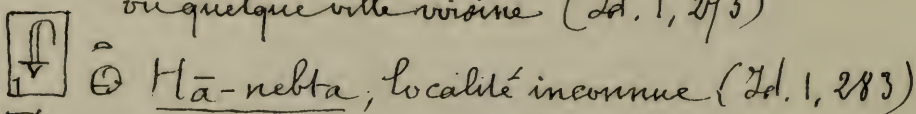 ou quelque ville voisine (Id. 1, 273)
Hā-nebta, localité inconnue (Id. 1, 283)